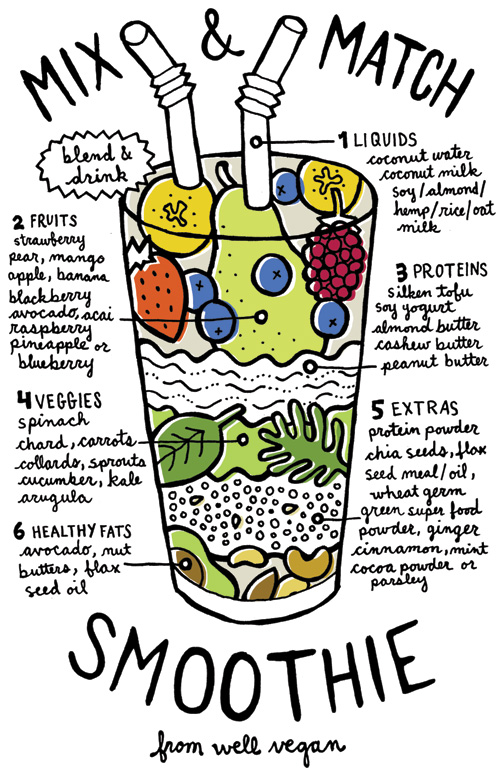 MIX & MATCH
blend &
drink
1 LIQUIDS
coconut water
coconut milk
soy/almond/
hemp/rice/oat
milk
2 FRUITS
strawberry
pear, mango
apple, banana
blackberry
avocado, acai
raspberry
pineapple or
blueberry
3 PROTEINS
silken tofu
soy yogurt
almond butter
cashew butter
peanut butter
4 VEGGIES
spinach
chard, carrots
collards, sprouts
cucumber, kale
arugula
5 EXTRAS
protein powder
chia seeds, flax
seed meal/oil,
wheat germ
green super food
powder, ginger
cinnamon, mint
cocoa powder or
parsley
6 HEALTHY FATS
avocado, nut
butters, flax
seed oil
SMOOTHIE
from well vegan